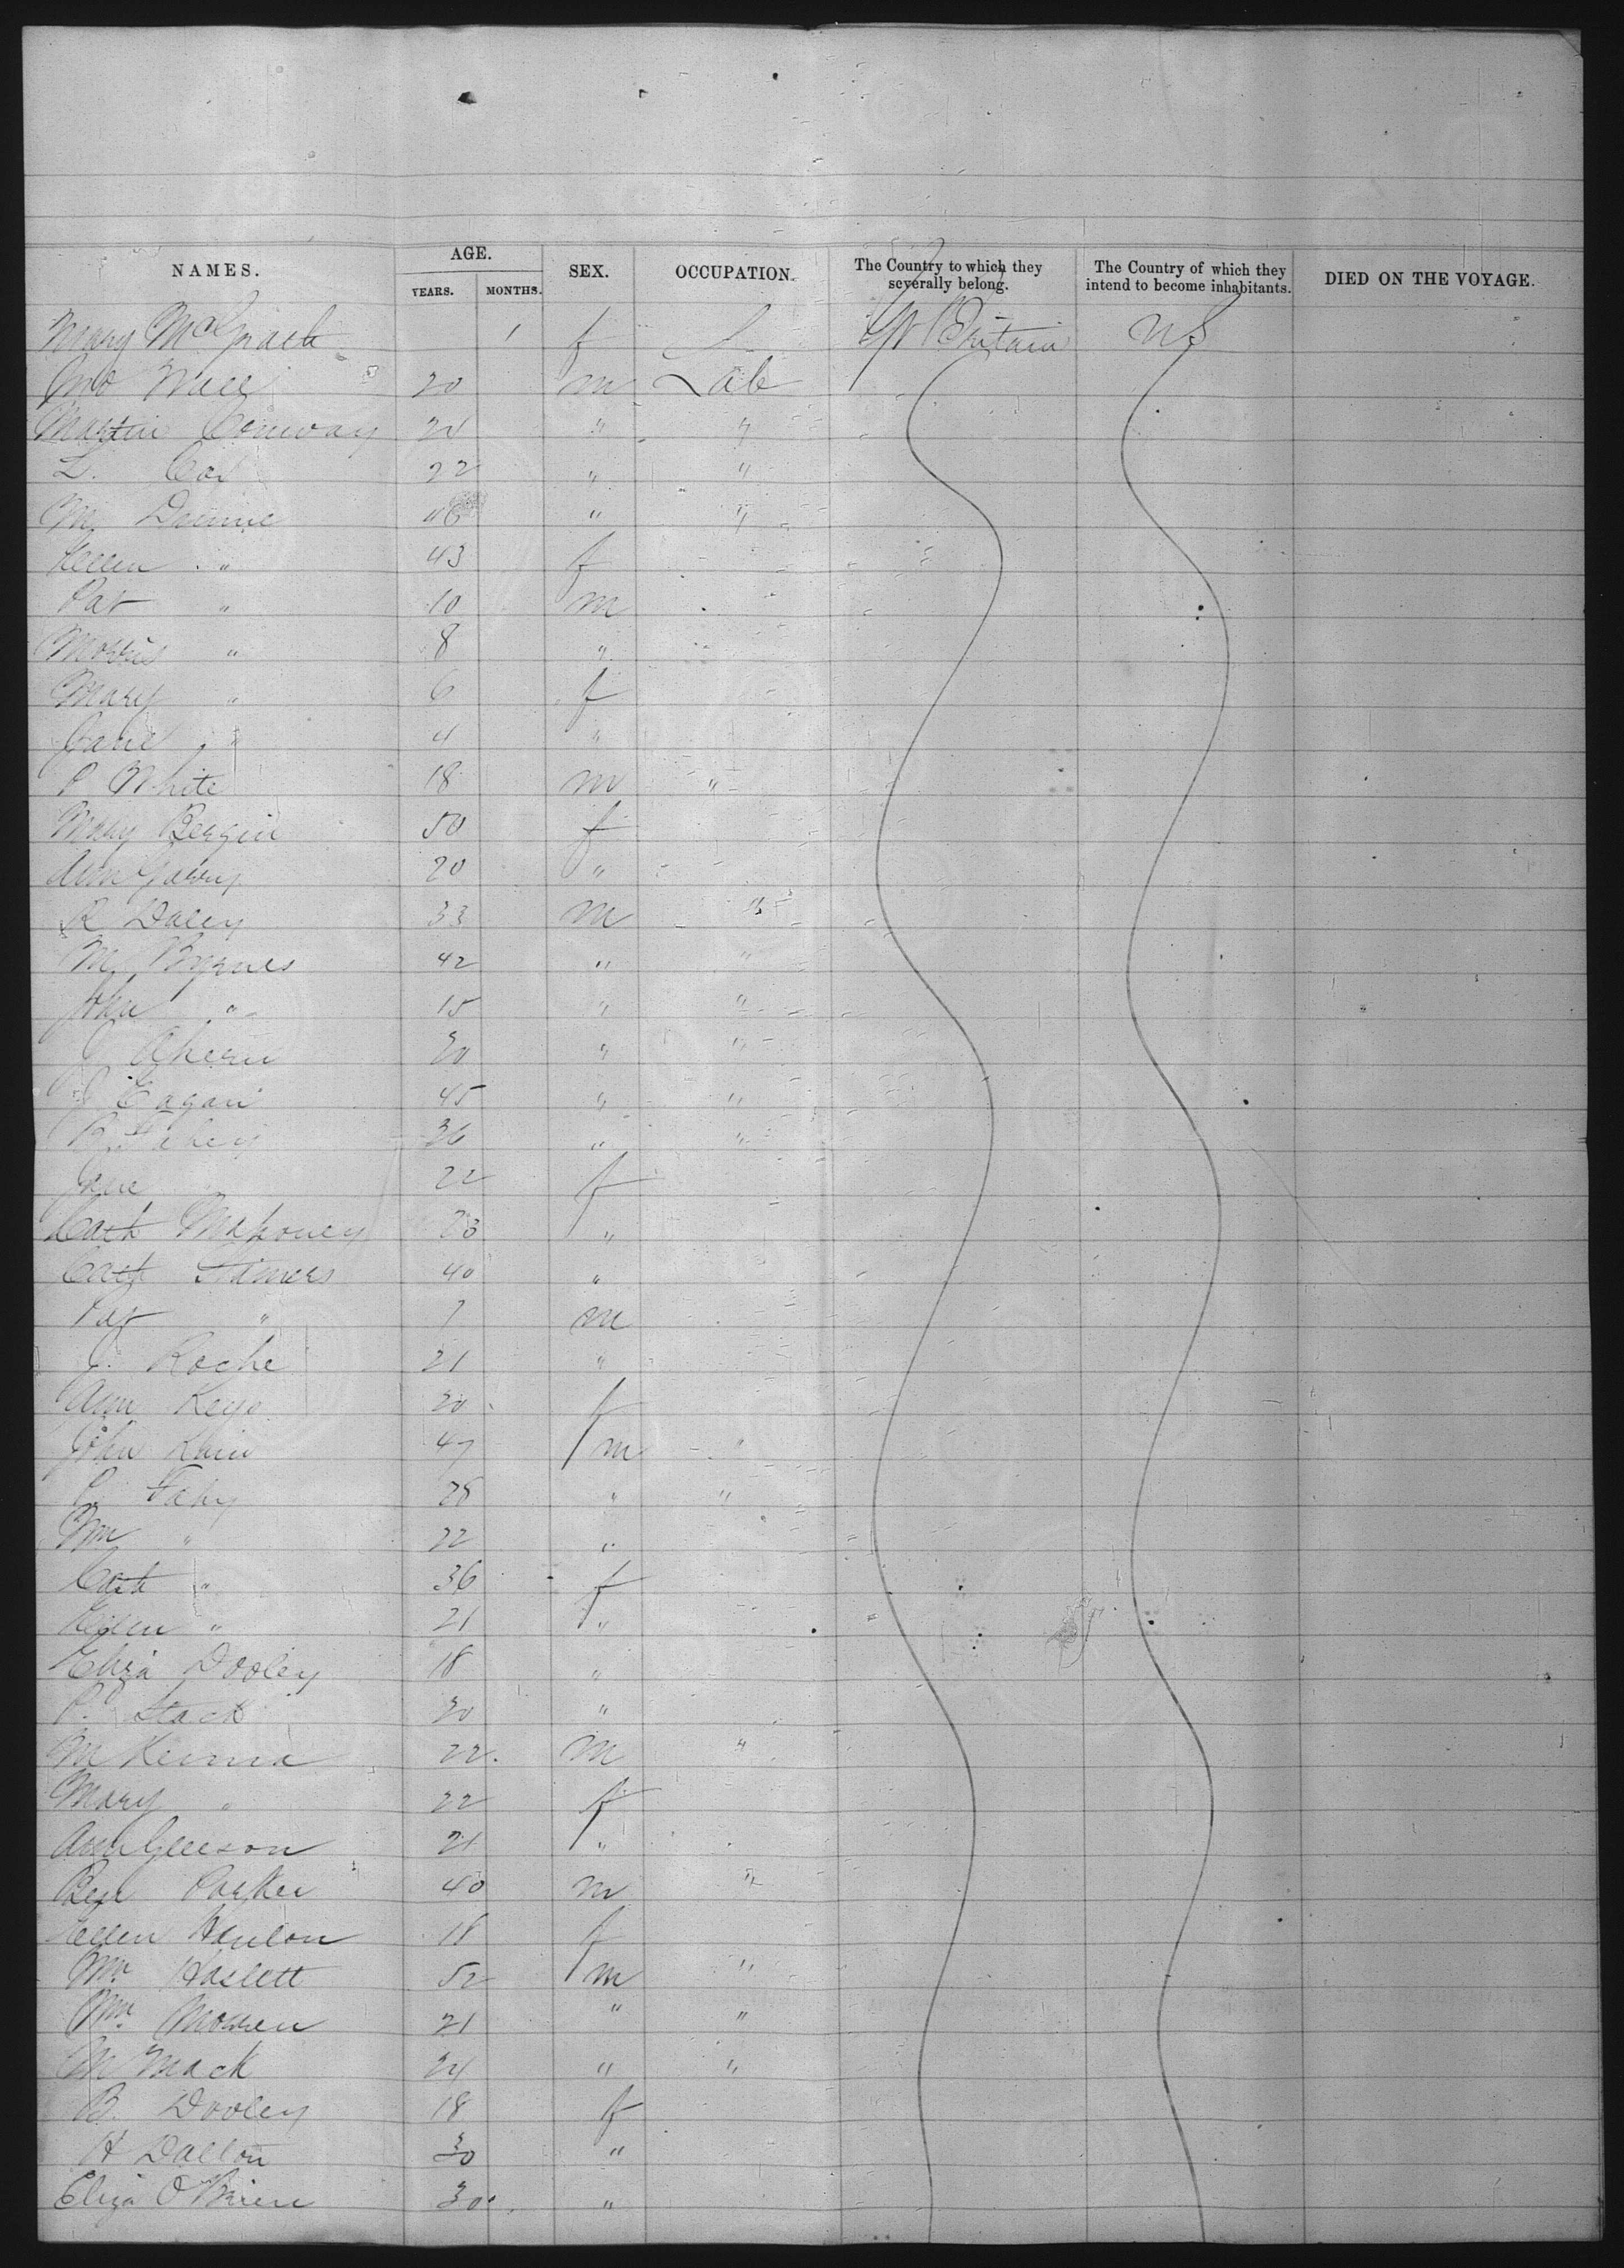 NAMES. AGE. SEX. OCCUPATION. The Country to which they severally belong. The Country of which they intend to become inhabitants. DIED ON THE VOYAGE.
YEARS. MONTHS.
Mary McGrath 1 f Gt Britain US
Jno 20 m Lab
Martin Conway 24 " "
L. Cox 22 " "
M. " "
Ellen " 43 f
Pat " 10 m
Morris " 8 "
Mary " 6 f
Jane " 4 "
P White 18 m "
Mary Bergin 50 f
Ann 20 "
R Daley 33 m "
M. Byrnes 42 " "
John " 15 " "
J Ahern 30 " "
J Eagan 45 " "
P. Fahey 36 " "
Jane 22 f
Cath Mahoney "
Cath 40 "
Pat " 7 m
J. Roche 21 "
Ann Keys 20 f
John 47 m "
P. Fahy 28 " "
Wm " 22 "
Cath " 36 f
Ellen " 21 "
Eliza Dooley 18 "
P. Stack 20 "
M Kenna 22 m "
Mary " 22 f
Ann Gleeson 21 "
Benj Parker 40 m "
Ellen Hanlon 18 f
Wm Haslett 52 m "
Wm. 21 " "
M Mack 24 " "
B. Dooley 18 f
H Dalton 30 "
Eliza O'Brien 30 "